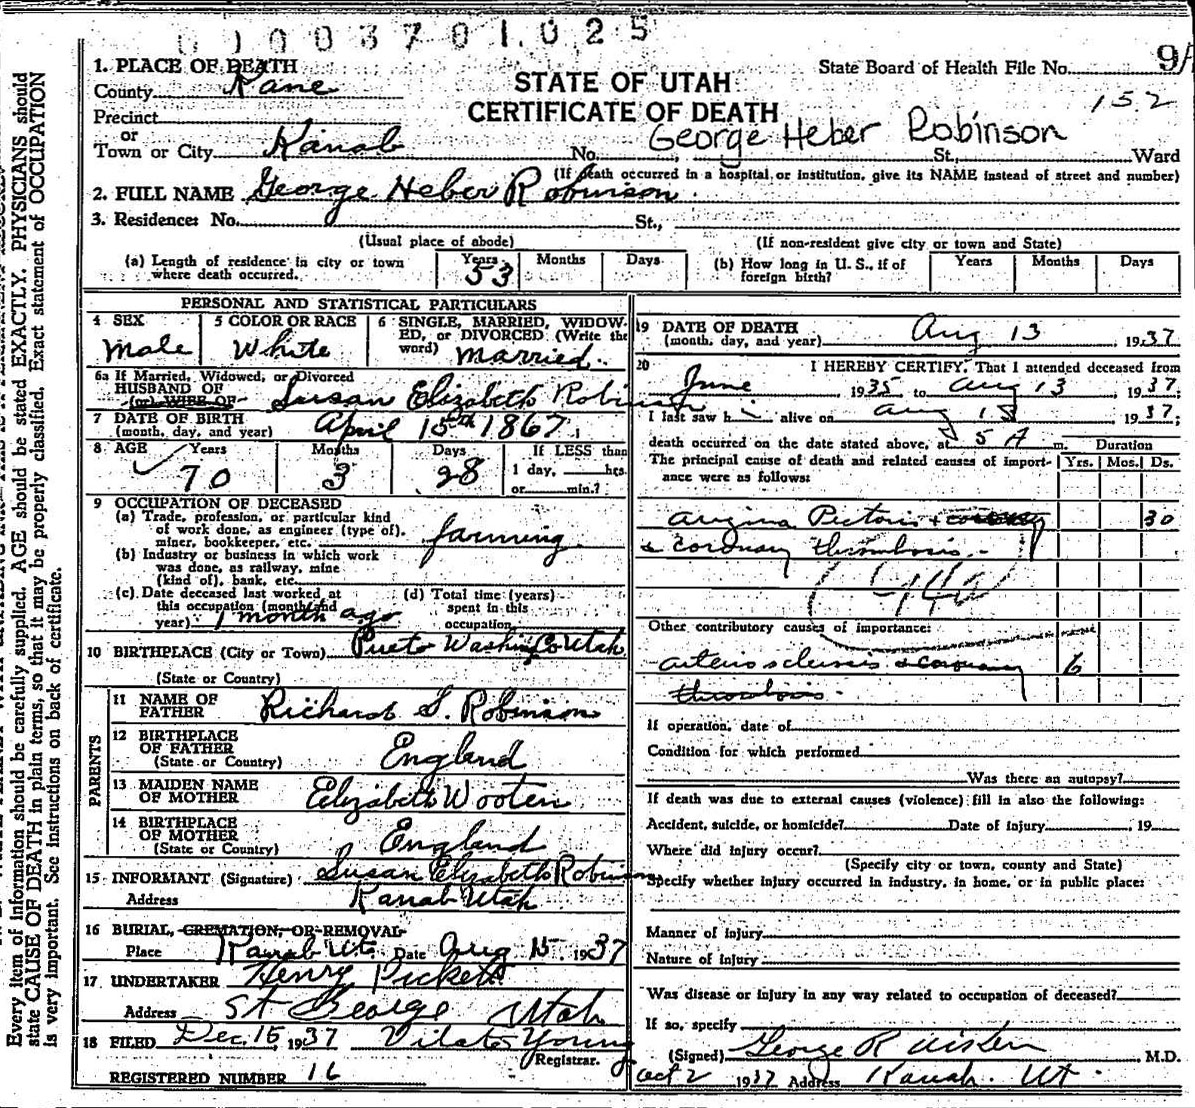 0 1 0 0 3 7 0 1 0 2 5
1. PLACE OF DEATH
County Kane
STATE OF UTAH
CERTIFICATE OF DEATH
State Board of Health File No. 9
152
Precinct
or
Town or City Kanab No. George Heber Robinson St., Ward
(If death occurred in a hospital or institution, give its NAME instead of street and number)
2. FULL NAME George Heber Robinson
3. Residence: No. St.,
(Usual place of abode) (If non-resident give city or town and State)
(a) Length of residence in city or town where death occurred. Years 53 Months Days (b) How long in U. S., if of foreign birth? Years Months Days
PERSONAL AND STATISTICAL PARTICULARS
4 SEX Male
5 COLOR OR RACE White
6 SINGLE, MARRIED, WIDOWED, or DIVORCED (Write the word) married.
6a If Married, Widowed, or Divorced
HUSBAND OF
(or) WIFE OF Susan Elizabeth Robinson
7 DATE OF BIRTH
(month, day, and year) April 15th 1867
8 AGE Years 70 Months 3 Days 28 If LESS than
1 day, hrs.
or min.?
9 OCCUPATION OF DECEASED
(a) Trade, profession, or particular kind
of work done, as engineer (type of),
miner, bookkeeper, etc. farming
(b) Industry or business in which work
was done, as railway, mine
(kind of), bank, etc.
(c) Date deceased last worked at
this occupation (month and
year) 1 month ago
(d) Total time (years)
spent in this
occupation
10 BIRTHPLACE (City or Town) Washing Co Utah
(State or Country)
PARENTS
11 NAME OF
FATHER Richard S. Robinson
12 BIRTHPLACE
OF FATHER
(State or Country) England
13 MAIDEN NAME
OF MOTHER Elizabeth Wooten
14 BIRTHPLACE
OF MOTHER
(State or Country) England
15 INFORMANT (Signature) Susan Elizabeth Robinson
Address Kanab Utah
16 BURIAL, CREMATION, OR REMOVAL
Place Kanab Ut. Date Aug 15, 1937
17 UNDERTAKER Henry Pickett
Address St George Utah
18 FILED Dec. 15 1937 Vilate Young
Registrar.
REGISTERED NUMBER 16
19 DATE OF DEATH
(month, day, and year) Aug 13, 1937
20 I HEREBY CERTIFY, That I attended deceased from
June 1935 to Aug 13, 1937;
I last saw h i alive on Aug 13, 1937;
death occurred on the date stated above, at 5 A m. Duration
The principal cause of death and related causes of importance were as follows: Yrs. Mos. Ds.
angina Pectoris + coronary 30
& coronary thrombosis.
Other contributory causes of importance:
arteriosclerosis & coronary 6
thrombosis.
If operation, date of
Condition for which performed
Was there an autopsy?
If death was due to external causes (violence) fill in also the following:
Accident, suicide, or homicide? Date of injury , 19
Where did injury occur?
(Specify city or town, county and State)
Specify whether injury occurred in industry, in home, or in public place:
Manner of injury
Nature of injury
Was disease or injury in any way related to occupation of deceased?
If so, specify
(Signed) George R Aiken, M.D.
Oct 2 1937 Address Kanab. Ut.
Every item of information should be carefully supplied. AGE should be stated EXACTLY. PHYSICIANS should
state CAUSE OF DEATH in plain terms, so that it may be properly classified. Exact statement of OCCUPATION
is very important. See instructions on back of certificate.